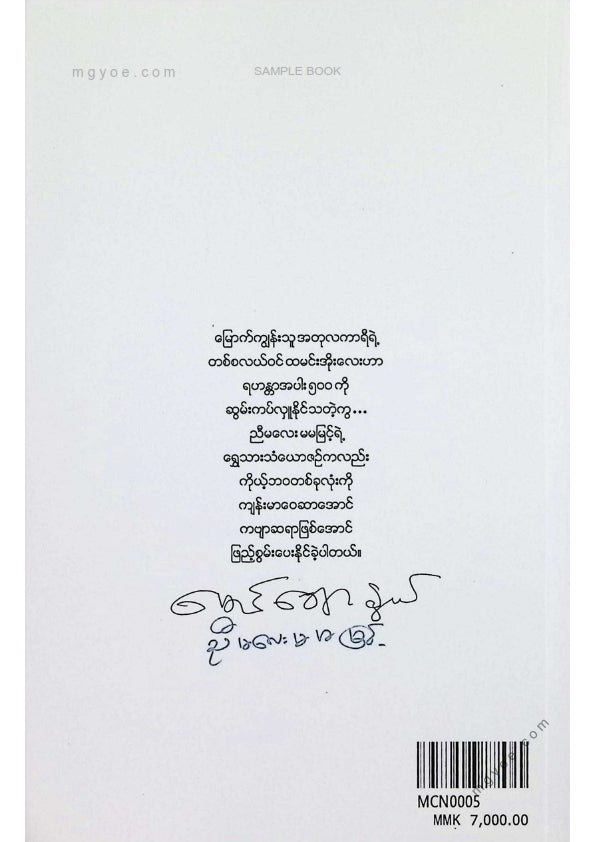 mgyoe.com SAMPLE BOOK
မြောက်ကျွန်းသူအတုလကာရီရဲ့
တစ်စလယ်ဝင်ထမင်းအိုးလေးဟာ
ရဟန္တာအပါး၅၀၀ကို
ဆွမ်းကပ်လှူနိုင်သတဲ့ကွ...
ညီမလေးမမမြင့်ရဲ့
ရွှေသားသံယောဇဉ်ကလည်း
ကိုယ့်ဘဝတစ်ခုလုံးကို
ကျန်းမာဝေဆာအောင်
ကဗျာဆရာဖြစ်အောင်
ဖြည့်စွမ်းပေးနိုင်ခဲ့ပါတယ်။
မောင်
ညီမလေးမမမြင့်
mgyoe.com
MCN0005
MMK 7,000.00